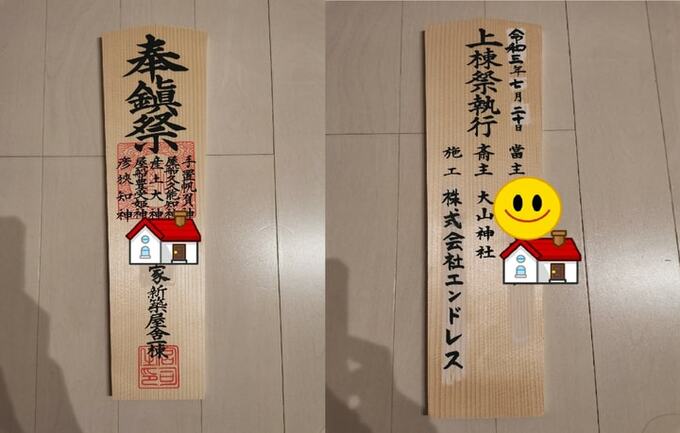 奉鎮祭
手置帆負神
屋船久久能知神
産土大神
屋船豊受姫神
彦狭知神
家新築屋舎一棟
令和三年七月二十日
上棟祭執行
當主
斎主 大山神社
施工 株式会社エンドレス